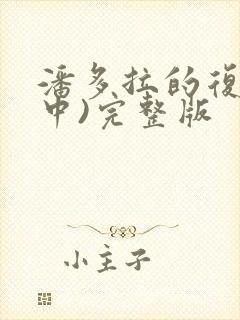 潘多拉的復
中)完整版
小主子